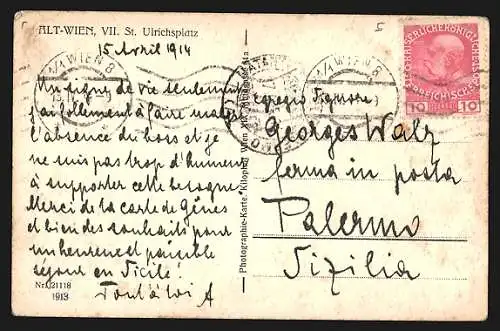 ALT-WIEN, VII. St. Ulrichsplatz
15 Avril 1914
Un signe de vie seulement
j'ai tellement à faire malgré
l'absence du boss et je
ne suis pas trop d'humeur
à supporter cette besogne.
Merci de la carte de Gênes
et bien des souhaits pour
un heureux et paisible
séjour en Sicile!
Tout à toi A
Nr. 21118
1913
Photographie-Karte Kilophot Wien XIX.
1/1 WIEN 8
1/1 WIEN 8
5
KAISERLICHE KÖNIGLICHE
ÖSTERREICHISCHE
10 HELLER 10
egregio Signore,
Georges Walz
ferma in posta
Palermo
Sizilia